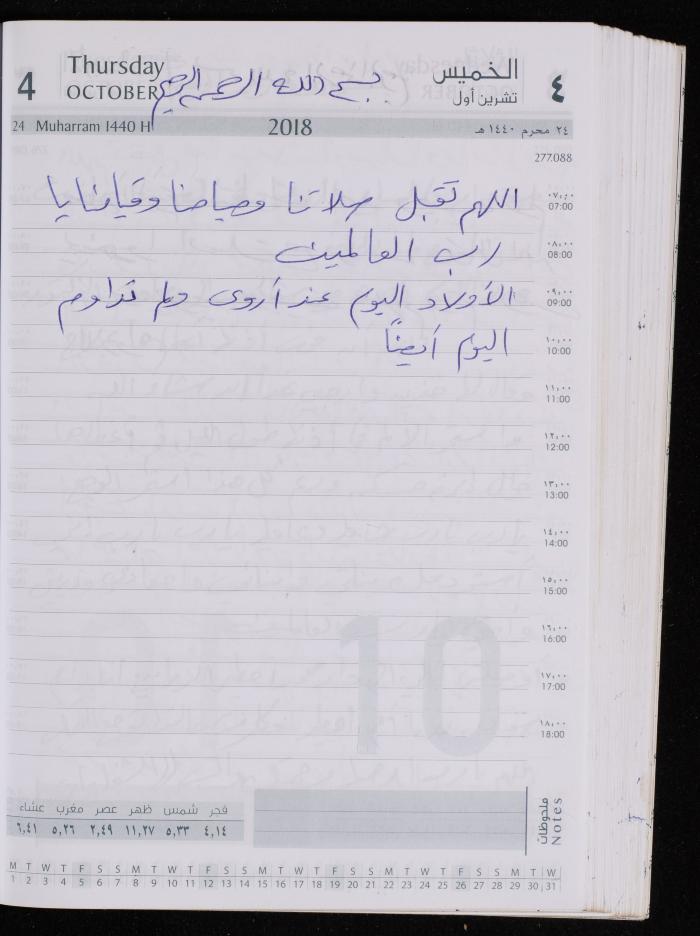 4 Thursday الخميس ٤
OCTOBER تشرين أول
بسم الله الرحمن الرحيم
24 Muharram 1440 H 2018 ٢٤ محرم ١٤٤٠ هـ
277.088
اللهم تقبل صلاتنا وصيامنا وقيامنا يا
رب العالمين
الأولاد اليوم عند أروى ولم تداوم
اليوم أيضاً
٠٧:٠٠
07:00
٠٨:٠٠
08:00
٠٩:٠٠
09:00
١٠:٠٠
10:00
١١:٠٠
11:00
١٢:٠٠
12:00
١٣:٠٠
13:00
١٤:٠٠
14:00
١٥:٠٠
15:00
١٦:٠٠
16:00
١٧:٠٠
17:00
١٨:٠٠
18:00
10
فجر شمس ظهر عصر مغرب عشاء
٤,١٤ ٥,٣٣ ١١,٢٧ ٢,٤٩ ٥,٢٦ ٦,٤١
ملحوظات
Notes
M T W T F S S M T W T F S S M T W T F S S M T W T F S S M T W
1 2 3 4 5 6 7 8 9 10 11 12 13 14 15 16 17 18 19 20 21 22 23 24 25 26 27 28 29 30 31